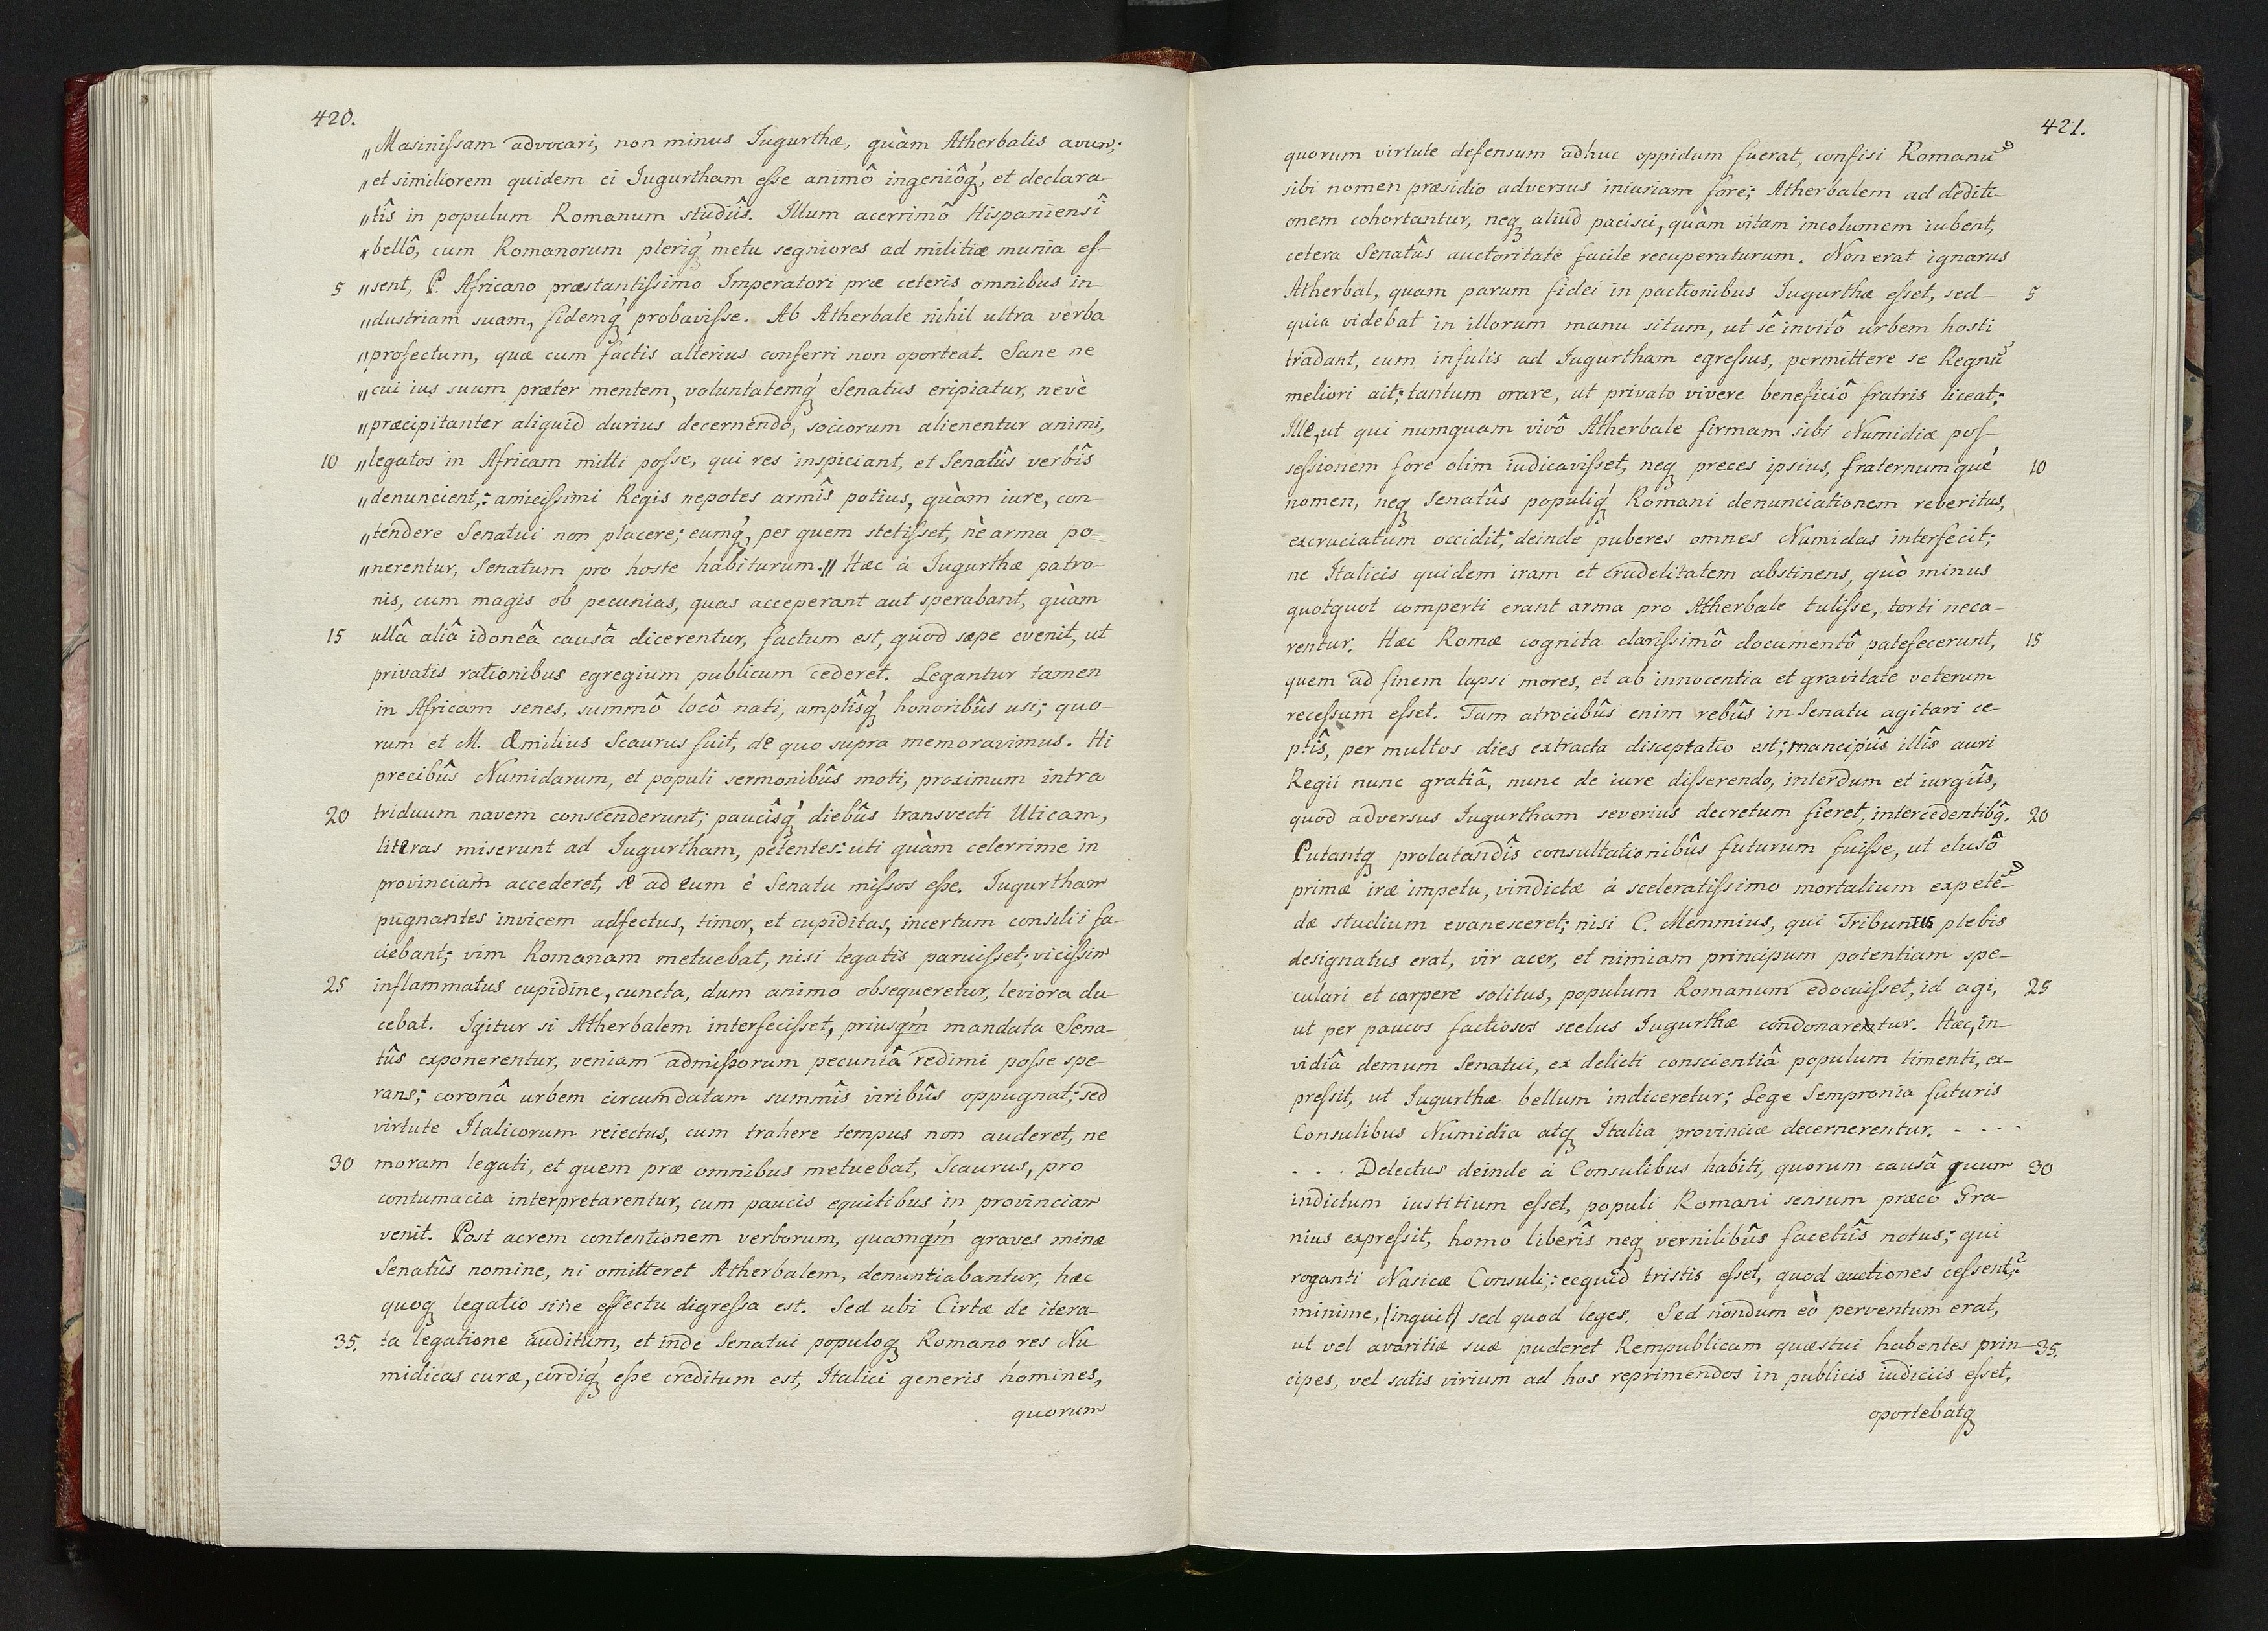 420.
„Masinißam advocari, non minus Iugurthæ, quàm Atherbalis avum;
„et similiorem quidem ei Iugurtham eſse animô ingeniôq́ꝫ, et declara-
„tîs in populum Romanum studiîs. Illum acerrimô Hispaniensî
„bellô, cum Romanorum pleriq́ꝫ metu segniores ad militiæ munia eſ-
5 „sent, P. Africano præstantiſsimo Imperatori præ ceteris omnibus in-
„dustriam suam, fidemq́ꝫ probaviſse. Ab Atherbale nihil ultra verba
„profectum, quæ cum factis alterius conferri non oporteat. Sane ne
„cui ius suum præter mentem, voluntatemq́ꝫ Senatus eripiatur, nevè
„præcipitanter aliquid durius decernendo, sociorum alienentur animi,
10 „legatos in Africam mitti poſse, qui res inspiciant, et Senatûs verbîs
„denuncient,: amiciſsimi Regis nepotes armîs potius, quàm iure, con-
„tendere Senatui non placere; eumq́ꝫ, per quem stetiſset, nè arma po-
„nerentur, Senatum pro hoste habiturum.„ Hæc à Iugurthæ patro-
nis, cum magis ob pecunias, quas acceperant aut sperabant, quàm
15 ullâ aliâ idoneâ causâ dicerentur, factum est, quod sæpe evenit, ut
privatis rationibus egregium publicum cederet. Legantur tamen
in Africam senes, summô locô nati, amplîsq́ꝫ honoribûs usi; quo-
rum et M. Æmilius Scaurus fuit, de quo supra memoravimus. Hi
precibûs Numidarum, et populi sermonibûs moti, proximum intra
20 triduum navem conscenderunt; paucîsq́ꝫ diebûs transvecti Uticam,
literas miserunt ad Iugurtham, petentes: uti quàm celerrime in
provinciam accederet, se ad eum è Senatu miſsos eſse. Iugurtham
pugnantes invicem adfectus, timor, et cupiditas, incertum consilii fa-
ciebant; vim Romanam metuebat, nisi legatis paruiſset; viciſsim
25 inflammatus cupidine, cuncta, dum animo obsequeretur, leviora du-
cebat. Igitur si Atherbalem interfeciſset, priusq́m mandata Sena-
tûs exponerentur, veniam admiſsorum pecuniâ redimi poſse spe-
rans; coronâ urbem circumdatam summîs viribûs oppugnat; sed
virtute Italicorum reiectus, cum trahere tempus non auderet, ne
30 moram legati, et quem præ omnibus metuebat, Scaurus, pro
contumacia interpretarentur, cum paucis equitibus in provinciam
venit. Post acrem contentionem verborum, quamq́m graves minæ
Senatûs nomine, ni omitteret Atherbalem, denuntiabantur, hæc
quoqꝫ legatio sine effectu digreſsa est. Sed ubi Cirtæ de itera-
35. ta legatione auditum, et inde Senatui populoqꝫ Romano res Nu
midicas curæ, cordiq́ꝫ eſse creditum est, Italici generis homines,
quorum
421.
quorum virtute defensum adhuc oppidum fuerat, confisi Romanū
sibi nomen præsidio adversus iniuriam fore; Atherbalem ad dediti-
onem cohortantur, neqꝫ aliud pacisci, quàm vitam incolumem iubent,
cetera Senatûs auctoritate facile recuperaturum. Non erat ignarus
Atherbal, quam parum fidei in pactionibus Iugurthæ eſset, sed- 5
quia videbat in illorum manu situm, ut sê invitô urbem hosti
tradant, cum infulis ad Iugurtham egreſsus, permittere se Regnū
meliori ait; tantum orare, ut privato vivere beneficiô fratris liceat;
Ille, ut qui numquam vivô Atherbale firmam sibi Numidiæ poſ-
seſsionem fore olim iudicaviſset, neqꝫ preces ipsius, fraternumquè 10
nomen, neqꝫ Senatûs populiq́ꝫ Romani denunciationem reveritus,
excruciatum occidit; deinde puberes omnes Numidas interfecit;
ne Italicis quidem iram et crudelitatem abstinens, quò minus
quotquot comperti erant arma pro Atherbale tuliſse, torti neca-
rentur. Hæc Romæ cognita clariſsimô documentô patefecerunt, 15
quem ad finem lapsi mores, et ab innocentia et gravitate veterum
receſsum eſset. Tam atrocibûs enim rebûs in Senatu agitari ce-
ptîs, per multos dies extracta disceptatio est; mancipiîs illîs auri
Regii nunc gratiâ, nunc de iure diſserendo, interdum et iurgiîs,
quod adversus Iugurtham severius decretum fieret, intercedentibꝗ. 20
Putantqꝫ prolatandîs consultationibûs futurum fuiſse, ut elusô
primæ iræ impetu, vindictæ à sceleratiſsimo mortalium expetē-
dæ studium evanesceret; nisi C. Memmius, qui Tribunus plebis
designatus erat, vir acer, et nimiam principum potentiam spe-
culari et carpere solitus, populum Romanum edocuiſset, id agi, 25
ut per paucos factiosos scelus Iugurthæ condonaretur. Hæc, in-
vidiâ demum Senatui, ex delicti conscientiâ populum timenti, ex-
preſsit, ut Iugurthæ bellum indiceretur; Lege Sempronia futuris
Consulibus Numidia atqꝫ Italia provinciæ decernerentur. - . . .
. . . Delectus deinde à Consulibus habiti, quorum causâ quum 30
indictum iustitium eſset, populi Romani sensum præco Gra-
nius expreſsit, homo liberîs neqꝫ vernilibûs facetiîs notus; qui
roganti Nasicæ Consuli,: ecquid tristis eſset, quod auctiones ceſsent;?
minime, (inquit) sed quod leges. Sed nondum eò perventum erat,
ut vel avaritiæ suæ puderet Rempublicam quæstui habentes prin- 35.
cipes, vel satis virium ad hos reprimendos in publicis iudiciis eſset.
oportebatqꝫ